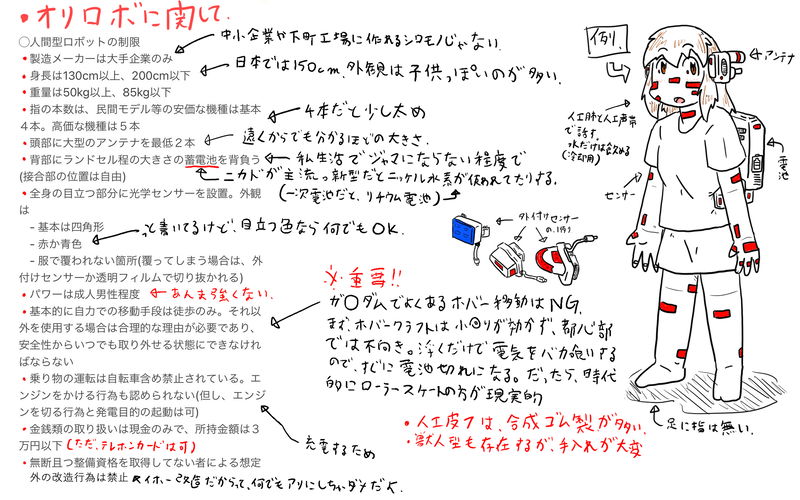 •オリロボに関して.
〇人間型ロボットの制限
•製造メーカーは大手企業のみ
中小企業や下町工場に作れるシロモノじゃない.
•身長は130cm以上、200cm以下
日本では150cm. 外観は子供っぽいのが多い.
•重量は50kg以上、85kg以下
•指の本数は、民間モデル等の安価な機種は基本
4本。高価な機種は５本
4本だと少し太め
•頭部に大型のアンテナを最低２本
遠くからでも分かるほどの大きさ.
•背部にランドセル程の大きさの蓄電池を背負う
(接合部の位置は自由)
私生活でジャマにならない程度で
ニカドが主流っ新型だとニッケル水素が使われてたりする.
(一次電池だと、リチウム電池)
•全身の目立つ部分に光学センサーを設置。外観
は
- 基本は四角形
- 赤か青色
って書いてるけど、目立つ色なら何でもOK.
- 服で覆われない箇所(覆ってしまう場合は、外
付けセンサーか透明フィルムで切り抜かれる)
外付けセンサー
の1例
•パワーは成人男性程度
あんま強くない.
•基本的に自力での移動手段は徒歩のみ。それ以
外を使用する場合は合理的な理由が必要であり、
安全性からいつでも取り外せる状態にできなけれ
ばならない
※重要!!
が〇ダムでよくあるホバー移動はNG.
まず、ホバークラフトは小回りが効かず、都心部
では不向き。浮くだけで電気をバカ食いする
ので、すぐに電池切れになる。だったら、時代
的にローラースケートの方が現実的
•乗り物の運転は自転車含め禁止されている。エ
ンジンをかける行為も認められない(但し、エンジ
ンを切る行為と発電目的の起動は可)
充電するため
•金銭類の取り扱いは現金のみで、所持金額は３
万円以下
(ただ、テレホンカードは可)
•無断且つ整備資格を取得してない者による想定
外の改造行為は禁止
イホー改造だからって、何でもアリにしちゃダメだよ.
•人工皮フは、合成ゴム製が多い.
•獣人型も存在するが、手入れが大変
例.
アンテナ
人工肺と人工声帯
で話す.
水だけは飲める
(冷却用)
センサー
電池
足に指は無い.